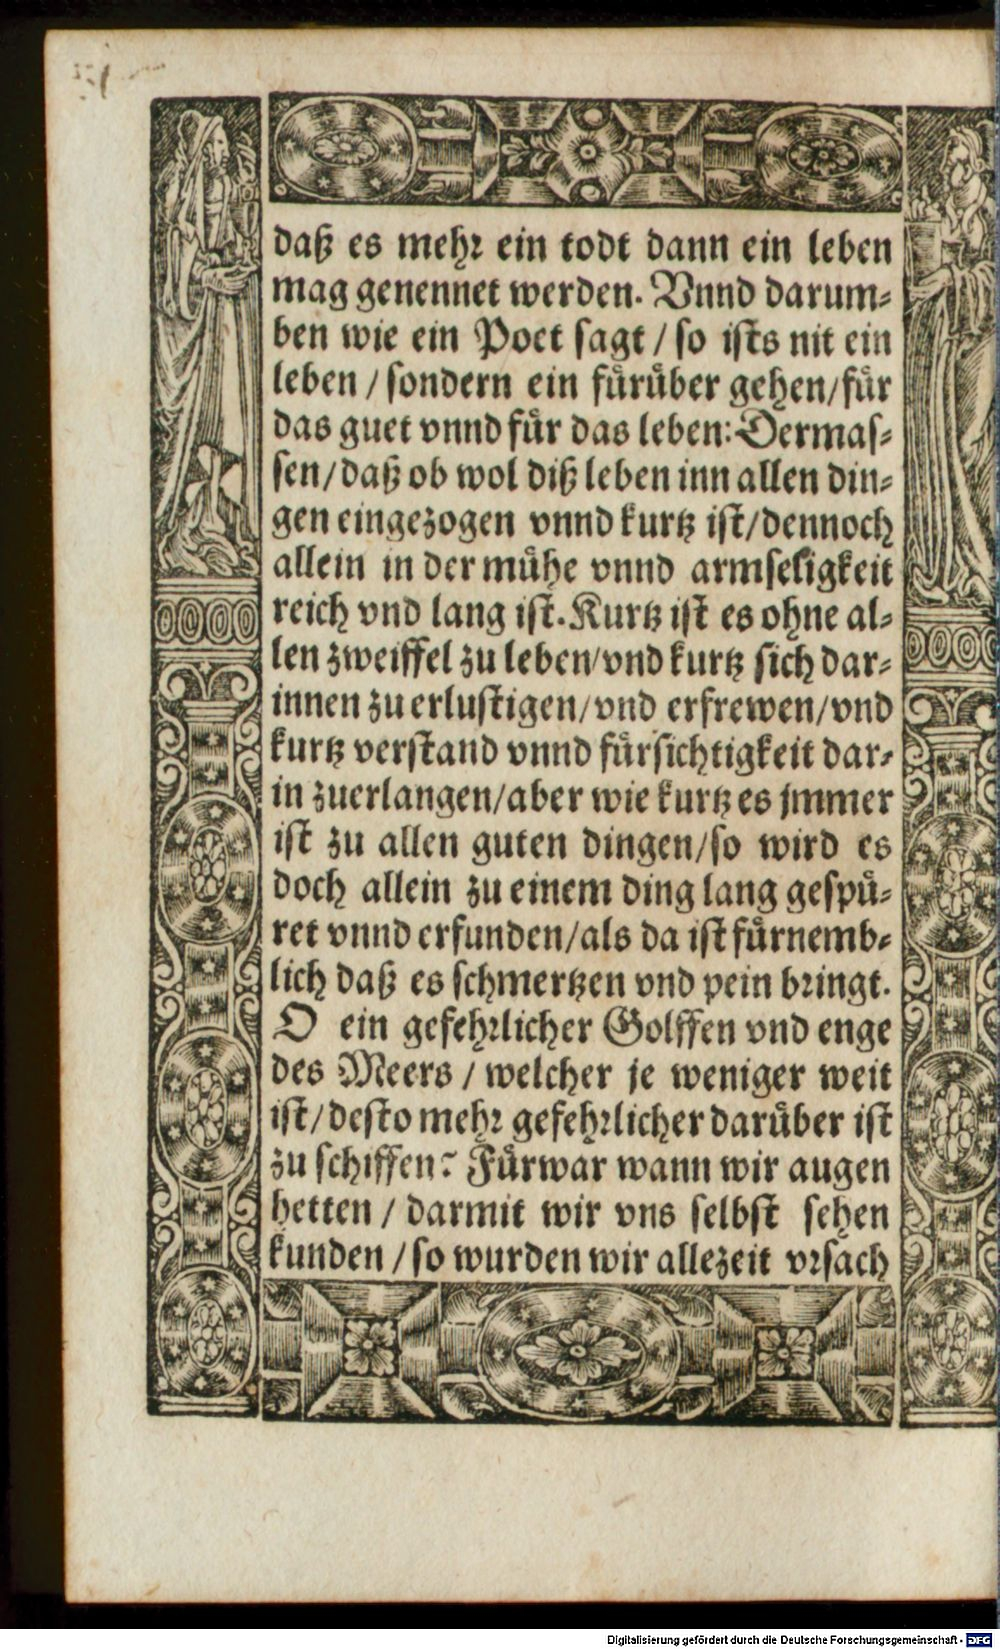 daß es mehr ein todt dann ein leben
mag genennet werden. Vnnd darum⸗
ben wie ein Poet sagt / so ists nit ein
leben / sondern ein fürüber gehen/für
das guet vnnd für das leben: Dermas⸗
sen/daß ob wol diß leben inn allen din⸗
gen eingezogen vnnd kurtz ist/dennoch
allein in der mühe vnnd armseligkeit
reich vnd lang ist. Kurtz ist es ohne al⸗
len zweiffel zu leben/vnd kurtz sich dar⸗
innen zu erlustigen/vnd erfrewen/vnd
kurtz verstand vnnd fürsichtigkeit dar⸗
in zuerlangen/aber wie kurtz es jmmer
ist zu allen guten dingen/so wird es
doch allein zu einem ding lang gespü⸗
ret vnnd erfunden/als da ist fürnemb⸗
lich daß es schmertzen vnd pein bringt.
O ein gefehrlicher Golffen vnd enge
des Meers / welcher je weniger weit
ist/desto mehr gefehrlicher darüber ist
zu schiffen? Fürwar wann wir augen
hetten / darmit wir vns selbst sehen
kunden / so wurden wir allezeit vrsach
Digitalisierung gefördert durch die Deutsche Forschungsgemeinschaft - DFG